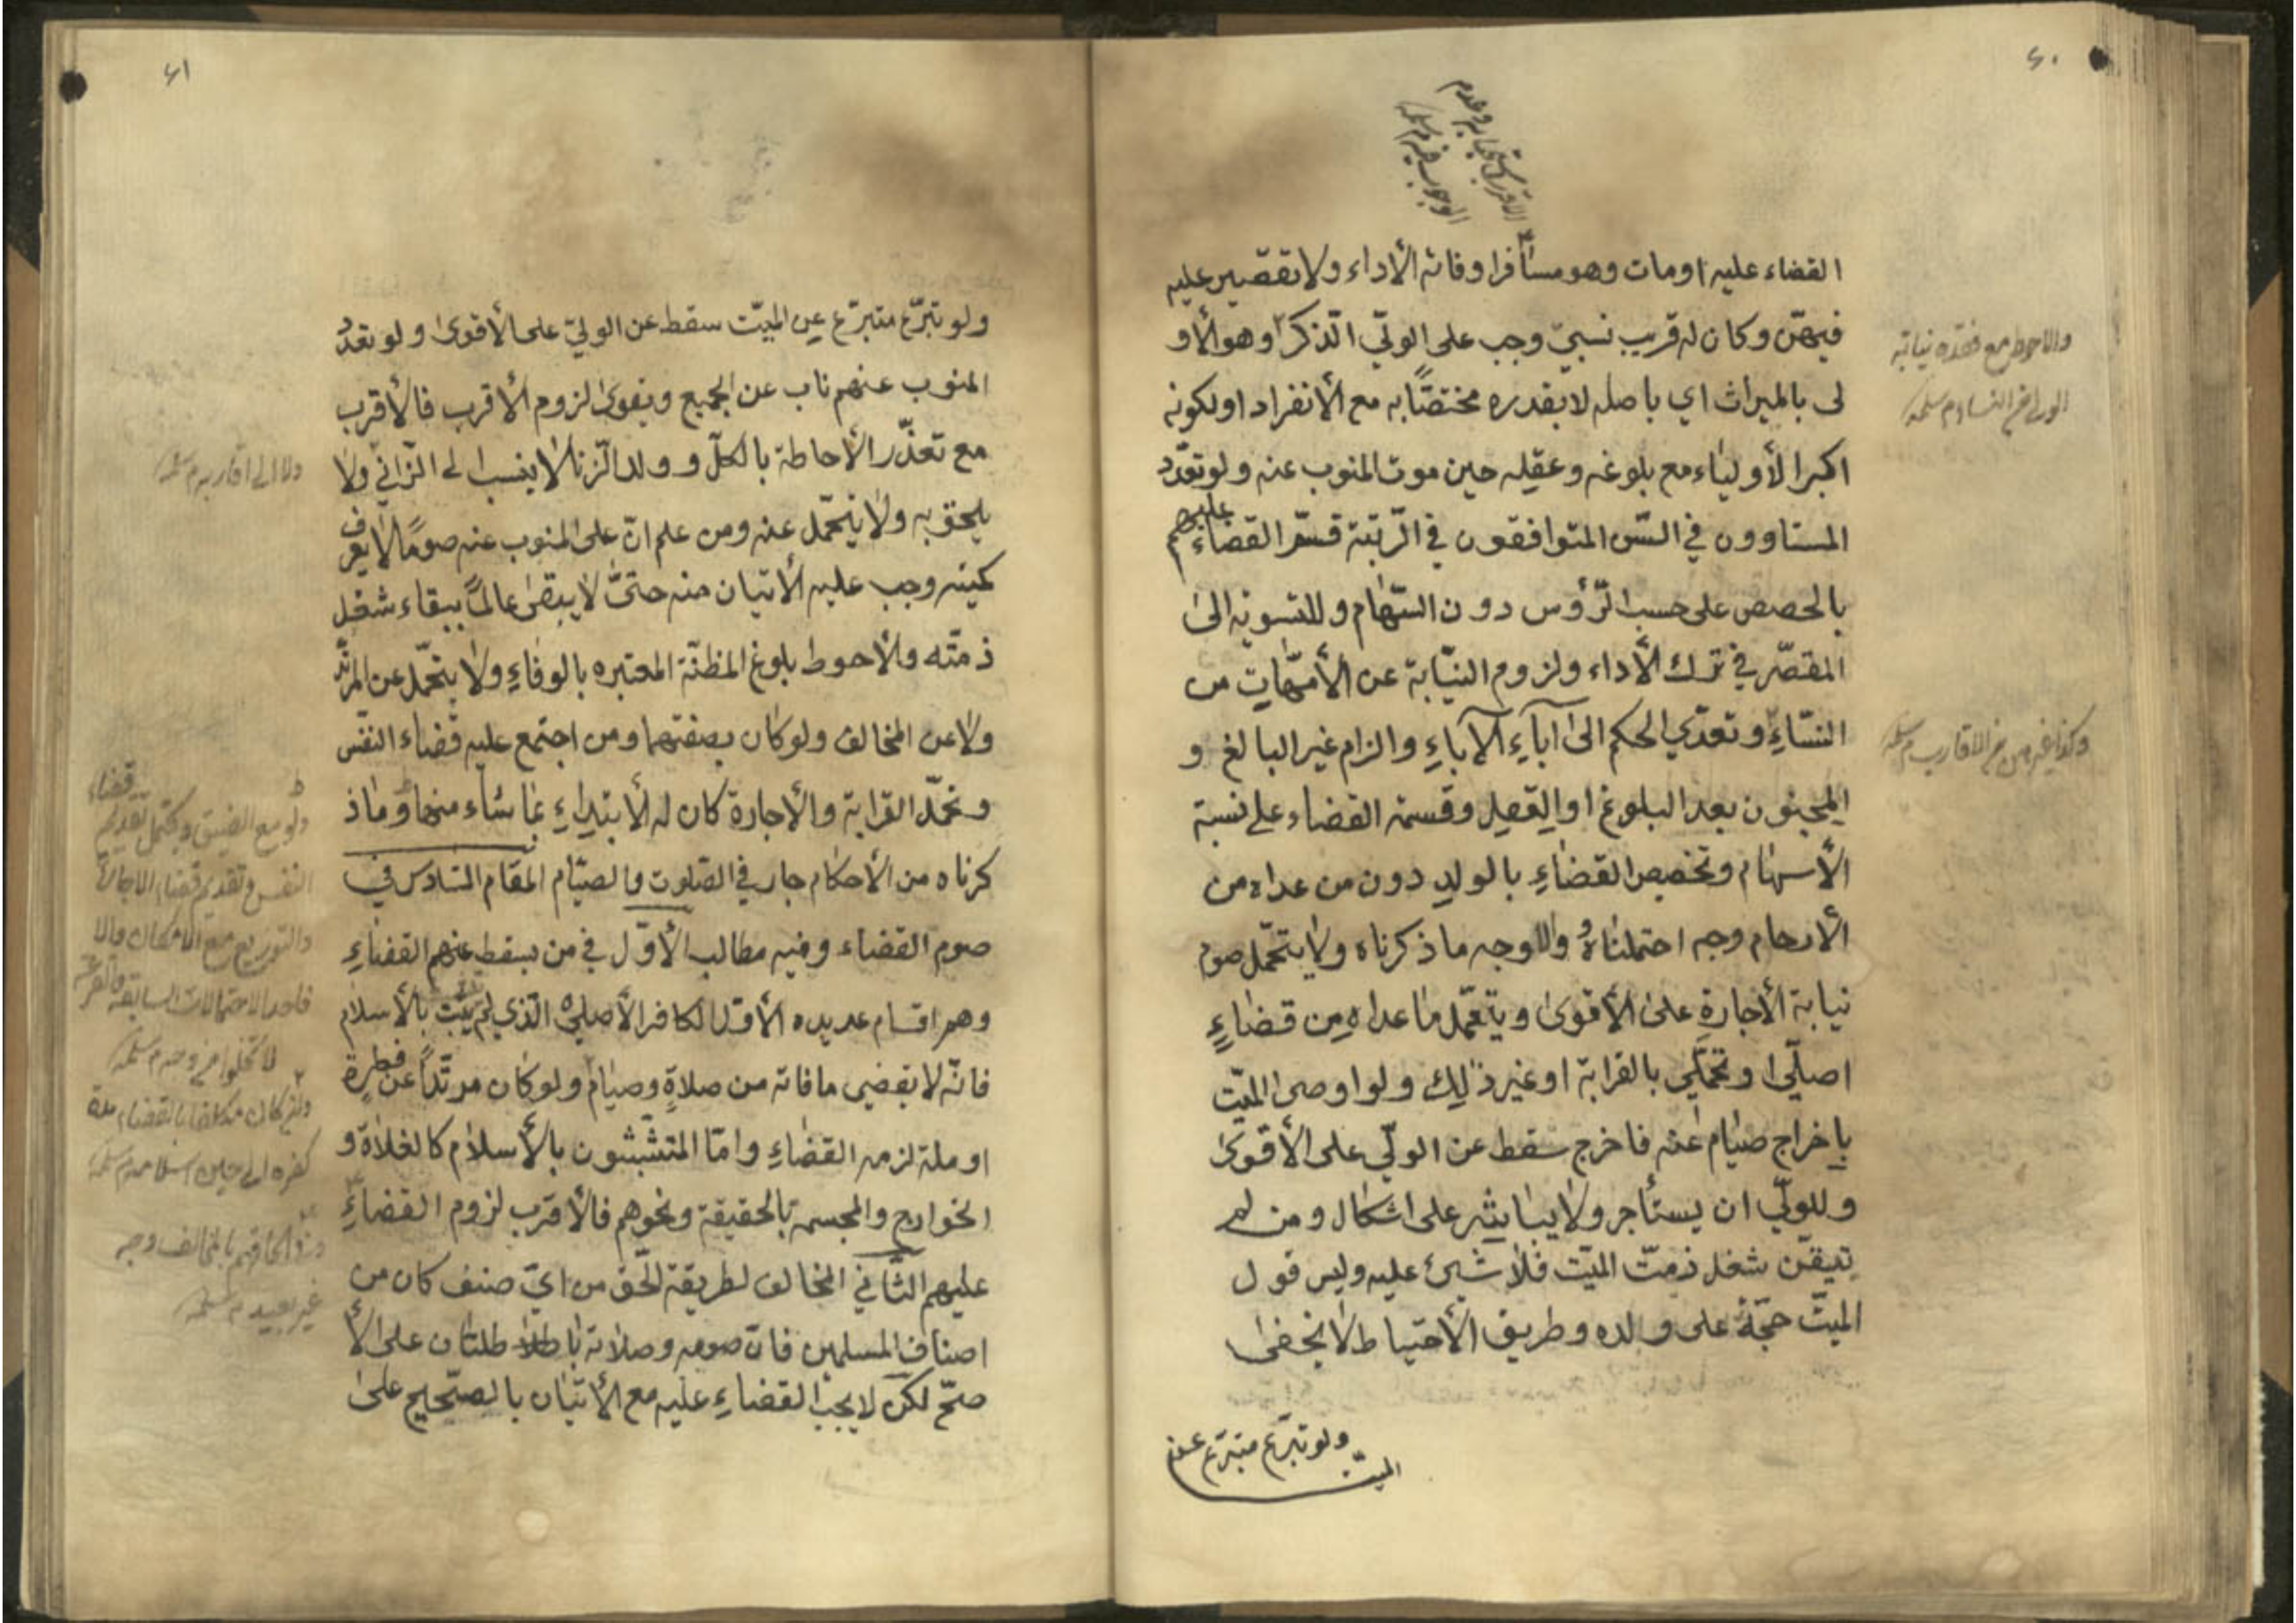 ٤٠
القضاء عليه او مات وهو مسافرا وفاته الأداء ولا تقصير عليه
فيهن وكان له قريب نسبيّ وجب على الوليّ الذكر وهو الأو
لى بالميراث اي باصله لا بقدره مختصًّا به مع الأنفراد او لكونه
اكبر الأولياء مع بلوغه وعقله حين موت المنوب عنه ولو تعدّد
المستاوون في السّن المتوافقون في الرّتبة قسّم القضاء عليهم
بالحصص على حسب الرّؤس دون السّهام وللتسوية الى
المقصّر في ترك الأداء ولزوم النيّابة عن الأمّهات من
النسّاءِ وتعدّي الحكم الى آباءِ الآباءِ والزام غير البالغ و
المجنون بعد البلوغ او العقل وقسمة القضاء على نسبة
الأسهام وتخصيص القضاءِ بالولدِ دون من عداه من
الأرحام وجه احتملناهُ والاوجه ما ذكرناه ولا يتحمّل صوم
نيابة الأجارةِ على الأقوىٰ ويتحمّل ما عداه من قضاءٍ
اصليّ او تحمّلي بالقرابة او غير ذٰلك ولو اوصى الميّت
باخراج صيام عنه فاخرج سقط عن الوليّ على الأقوىٰ
وللوليّ ان يستأجر ولا يباشر على اشكال ومن لم
يتيقّن شغل ذمّت الميّت فلا شيئ عليه وليس قول
الميّت حجّة على ولده وطريق الأحتياط لا يخفىٰ
ولو تبرّع متبرّع عن
الميّت
والاحوط مع فقده نيابة
النساء م سلمه
وكذا غيرهن من الاقارب م سلمه
٤١
ولو تبرّع متبرّع عن الميّت سقط عن الوليّ على الأقوىٰ ولو تعدّد
المنوب عنهم ناب عن الجميع ويقوىٰ لزوم الأقرب فالأقرب
مع تعذّر الأحاطة بالكلّ وولد الزّنا لا ينسب الى الزّاني ولا
يلحق به ولا يتحمّل عنه ومن علم انّ على المنوب عنه صومًا لا يعرف
كميته وجب عليه الأتيان منه حتىّ لا يبقىٰ عالمًا ببقاء شغل
ذمّته والأحوط بلوغ المظنّة المعتبره بالوفاءِ ولا يتحمّل عن المرتّد
ولا عن المخالف ولو كان بصفتهما ومن اجتمع عليه قضاء النفس
وتحمّل القرابة والأجارة كان له الأبتداءِ بما شاء منها وما ذ
كرناه من الأحكام جار في الصّلوت والصيّام المقام السّادس في
صوم القضاء وفيه مطالب الأوّل في من يسقط عنهم القضاءِ
وهم اقسام عديده الأوّل الكافر الأصليّ الّذي لم يتشبّث بالأسلام
فانّه لا يقضي ما فاته من صلاةٍ وصيام ولو كان مرتّدًا عن فطرة
او ملة لزمه القضاءِ وامّا المتشبّثون بالأسلام كالغلاة و
الخوارج والمجسمة بالحقيقة ونحوهم فالأقرب لزوم القضاءِ
عليهم الثّاني المخالف لطريقة الحّق من ايّ صنف كان من
اصناف المسلمين فانّ صومه وصلاته باطلتان على الأ
صحّ لكن لا يجب القضاءِ عليه مع الأتيان بالصّحيح علىٰ
ولا الى اقاربه م سلمه
ولو مع الضيق ويحتمل تقديم قضاء
النفس وتقديم قضاء الاجارة
والتوزيع مع الامكان والا
فاحد الاحتمالات السابقة
وان كان مكلفا بالقضاء مدة
كفره الى حين اسلامه م سلمه
وفي الحاقهم بالمخالف وجه
غير بعيد م سلمه